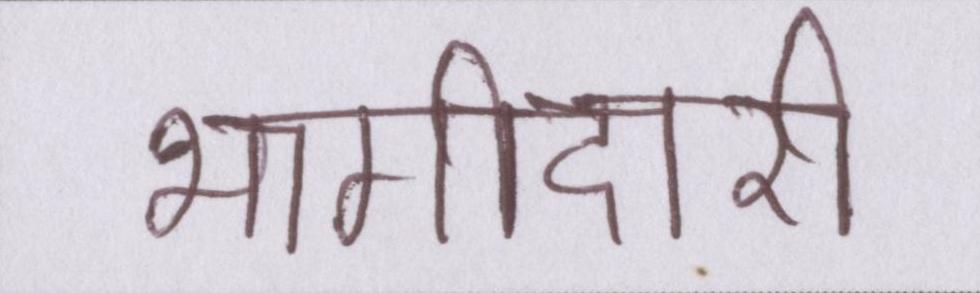 भागीदारी